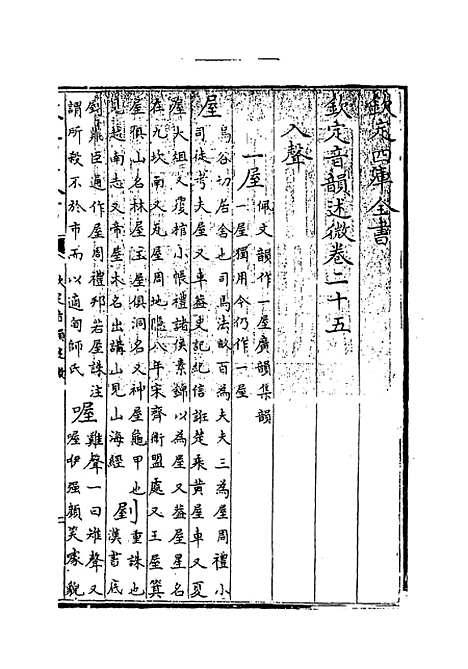 欽定四庫全書
欽定音韻述微卷二十五
入聲
一屋
佩文韻作一屋廣韻集韻
一屋獨用今仍作一屋
屋
烏谷切居舎也司馬法畝百為夫夫三為屋周禮小
司徒考夫屋又車蓋史記紀信誑楚乘黄屋車又夏
屋大俎又覆棺小帳禮諸侯素錦以為屋又蓋屋星名
在危坎南又瓦屋周地隱八年宋齊衛盟處又王屋箕
屋俱山名林屋玉屋俱洞名又神屋龜甲也
㓇
重誅也
見越南志又帝屋木名出講山見山海經
漢書底
㓇鼎臣通作屋周禮邦若屋誅注
謂所殺不於市而以適甸師氏
喔
雞聲一曰雉聲又
喔伊强顔笑噱貌